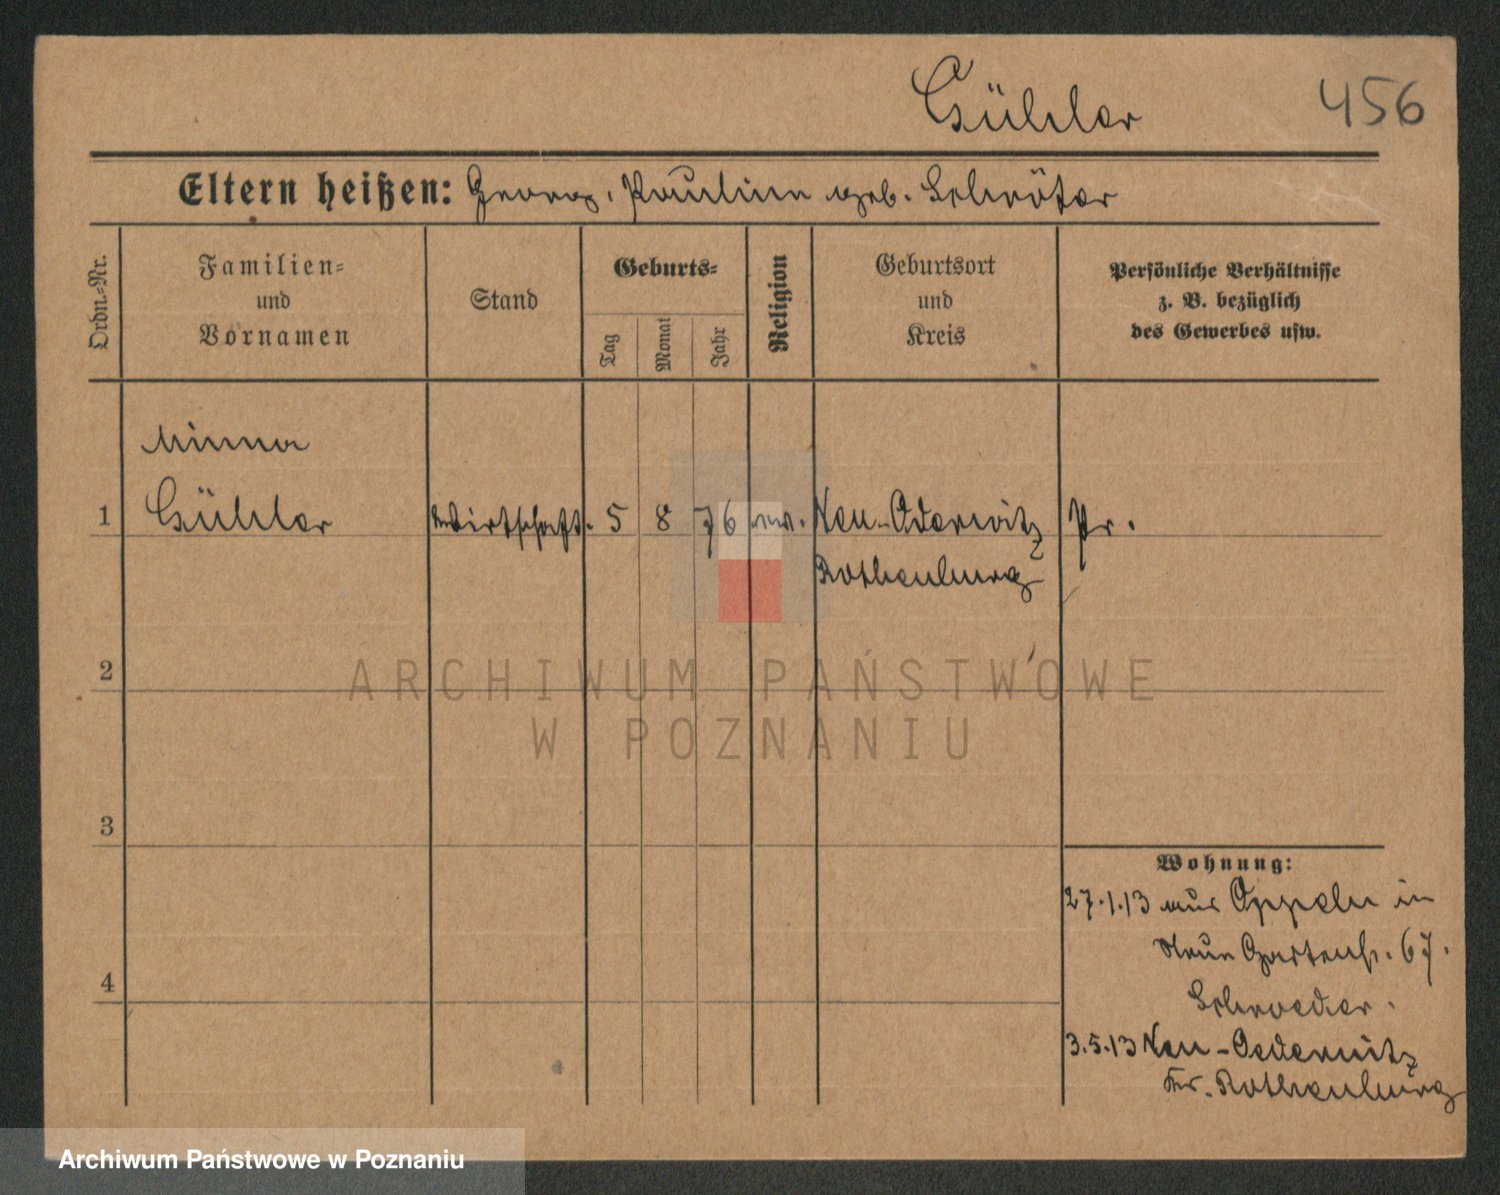 Gühler
456
Eltern heißen: Georg, Pauline geb. Schröter
Ordn.-Nr.
Familien-
und
Vornamen
Stand
Geburts-
Tag
Monat
Jahr
Religion
Geburtsort
und
Kreis
Persönliche Verhältnisse
z. B. bezüglich
des Gewerbes usw.
Minna
1 Gühler Wirtschaft. 5 8 76 ev. Neu-Oderwitz Pr.
Rothenburg
2
3
4
Wohnung:
27.1.13 aus Oppeln in
Neue Gartenstr. 67.
Schroeder.
3.5.13 Neu-Oedernitz
Kr. Rothenburg
ARCHIWUM PAŃSTWOWE
W POZNANIU
Archiwum Państwowe w Poznaniu